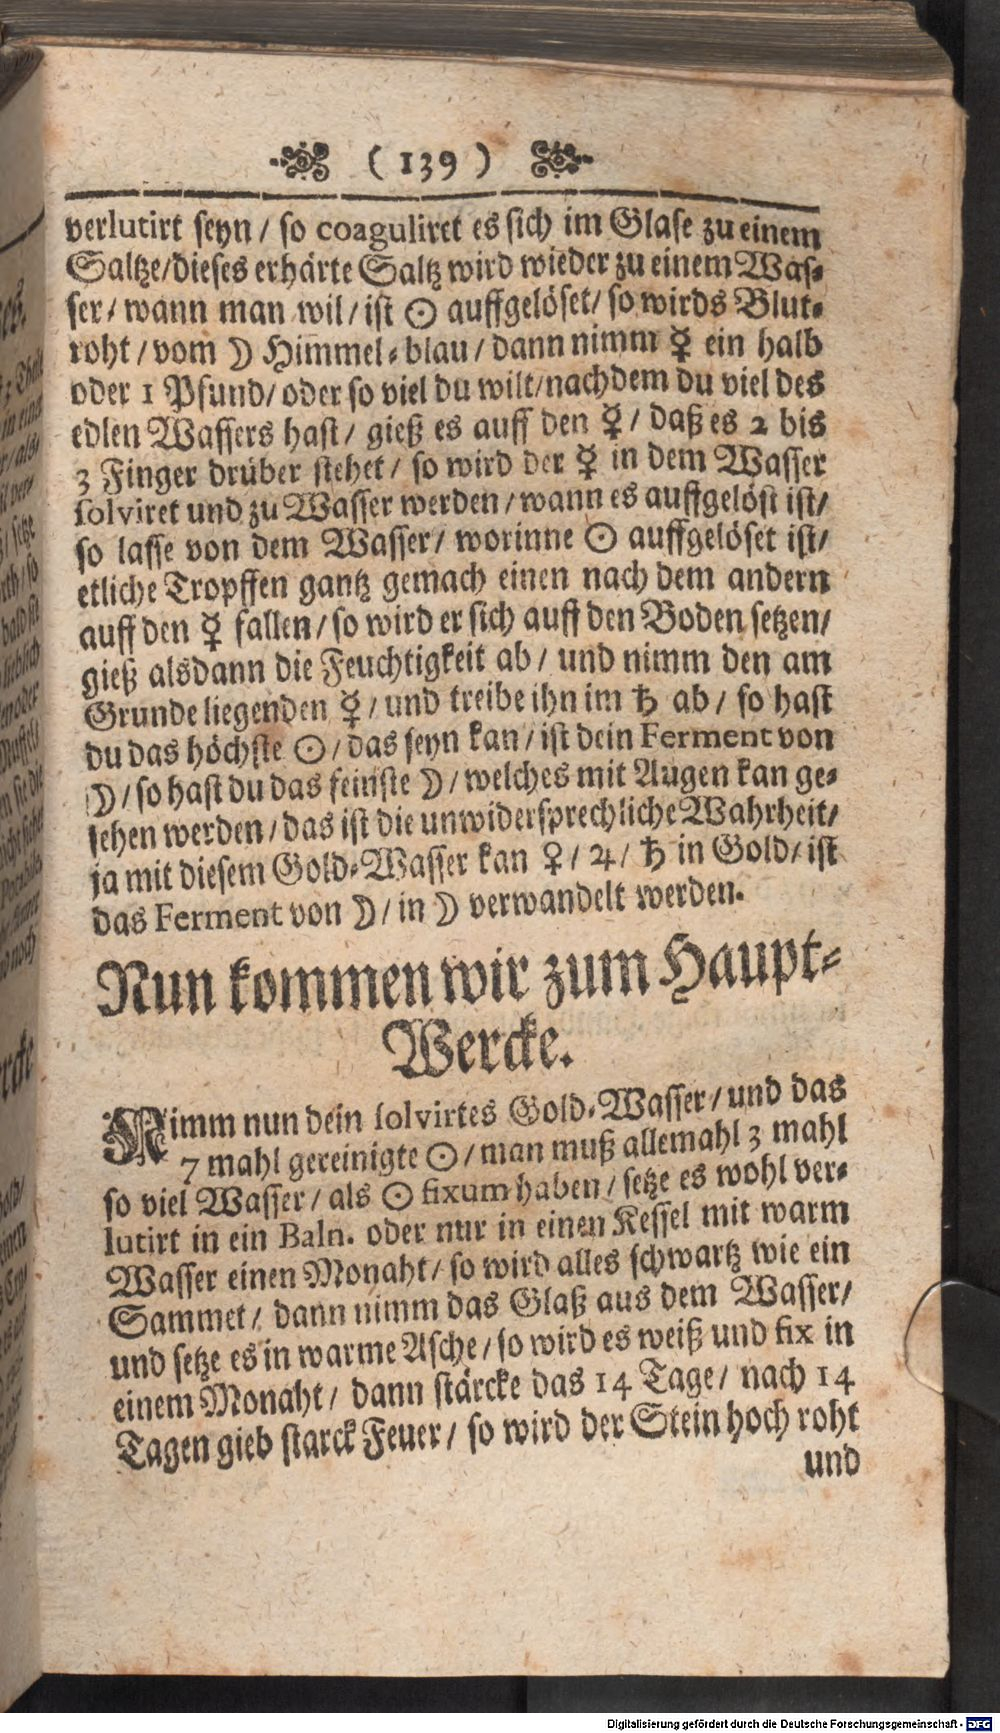 ( 139 )
verlutirt seyn / so coaguliret es sich im Glase zu einem
Saltze/dieses erhärte Saltz wird wieder zu einem Was-
ser/ wann man wil/ ist ☉ auffgelöset/ so wirds Blut-
roht / vom ☽ Himmel-blau / dann nimm ☿ ein halb
oder 1 Pfund/ oder so viel du wilt/nachdem du viel des
edlen Wassers hast/ gieß es auff den ☿/ daß es 2 bis
3 Finger drüber stehet/ so wird der ☿ in dem Wasser
solviret und zu Wasser werden / wann es auffgelöst ist/
so lasse von dem Wasser/ worinne ☉ auffgelöset ist/
etliche Tropffen gantz gemach einen nach dem andern
auff den ☿ fallen / so wird er sich auff den Boden setzen/
gieß alsdann die Feuchtigkeit ab / und nimm den am
Grunde liegenden ☿/ und treibe ihn im ♄ ab / so hast
du das höchste ☉/ das seyn kan / ist dein Ferment von
☽/ so hast du das feinste ☽/ welches mit Augen kan ge-
sehen werden / das ist die unwidersprechliche Wahrheit/
ja mit diesem Gold-Wasser kan ♀/ ♃/ ♄ in Gold/ ist
das Ferment von ☽/ in ☽ verwandelt werden.
Nun kommen wir zum Haupt-
Wercke.
Nimm nun dein solvirtes Gold-Wasser/ und das
7 mahl gereinigte ☉/ man muß allemahl 3 mahl
so viel Wasser/ als ☉ fixum haben/ setze es wohl ver-
lutirt in ein Baln. oder nur in einen Kessel mit warm
Wasser einen Monaht/ so wird alles schwartz wie ein
Sammet/ dann nimm das Glaß aus dem Wasser/
und setze es in warme Asche/ so wird es weiß und fix in
einem Monaht/ dann stärcke das 14 Tage/ nach 14
Tagen gieb starck Feuer/ so wird der Stein hoch roht
und
Digitalisierung gefördert durch die Deutsche Forschungsgemeinschaft - DFG